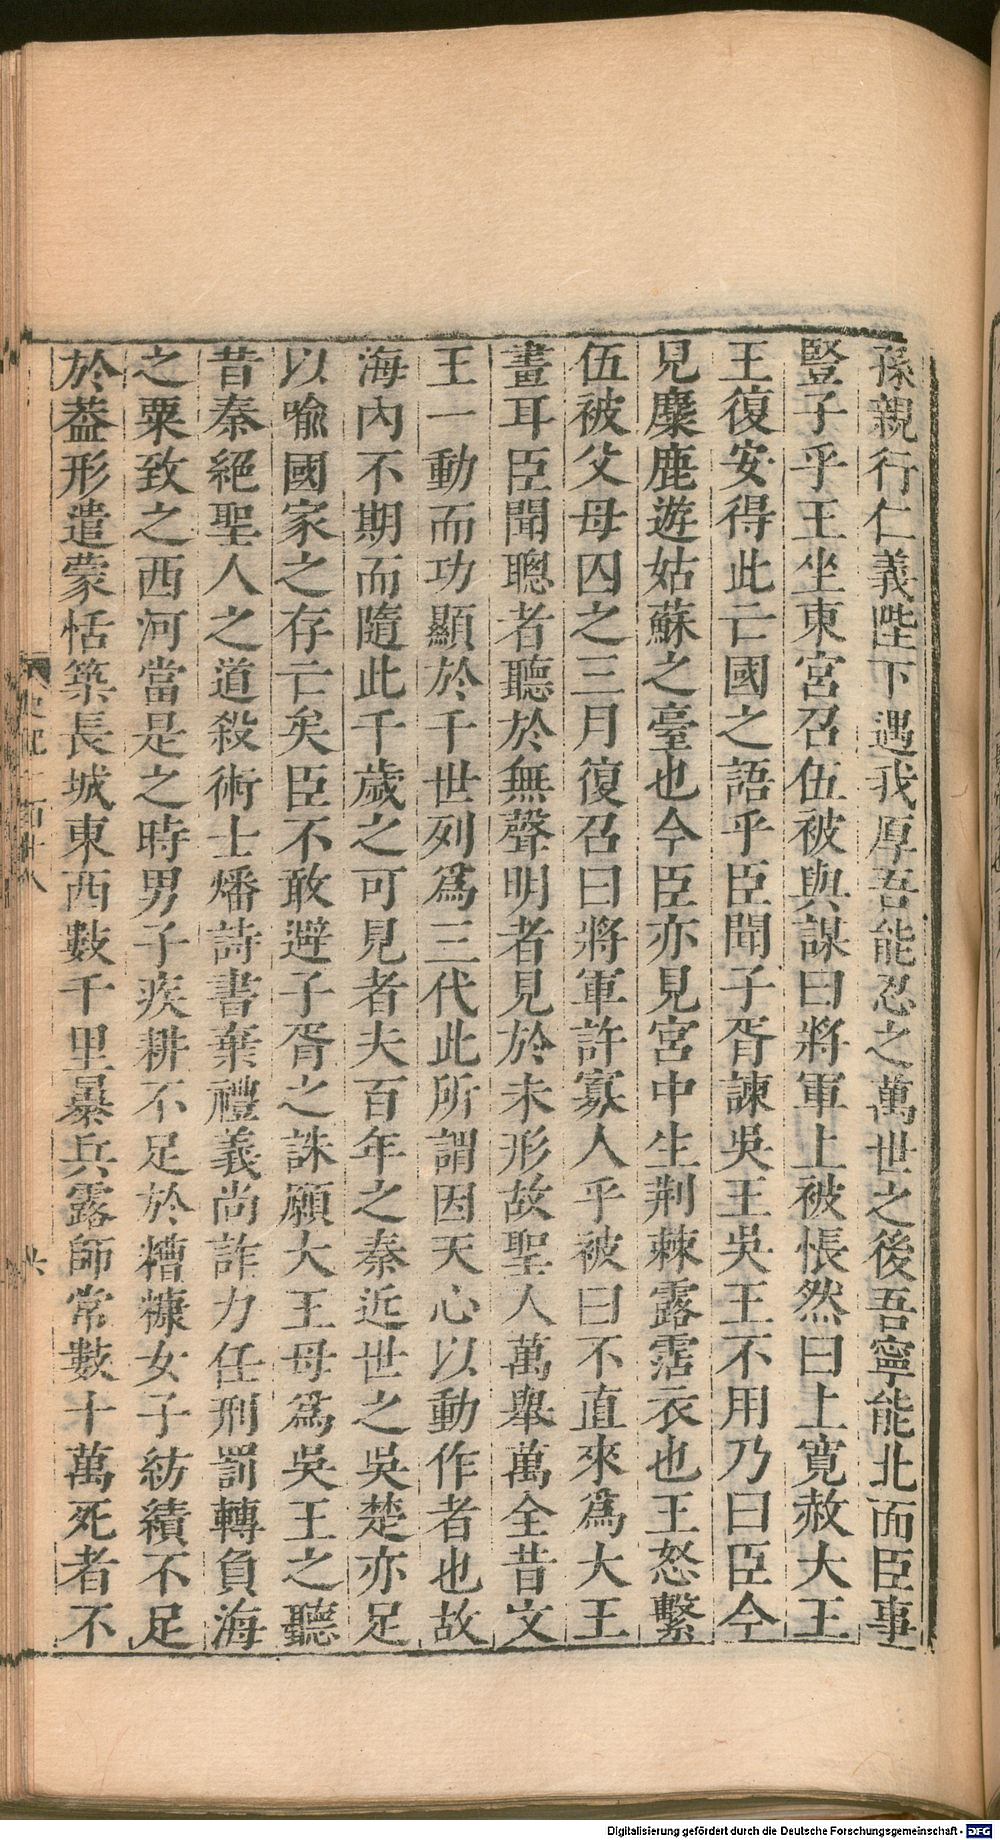 孫親行仁義陛下遇我厚吾能忍之萬世之後吾寧能北面臣事
豎子乎王坐東宮召伍被與謀曰將軍上被悵然曰上寬赦大王
王復安得此亡國之語乎臣聞子胥諫吳王吳王不用乃曰臣今
見麋鹿遊姑蘇之臺也今臣亦見宮中生荆棘露霑衣也王怒繫
伍被父母囚之三月復召曰將軍許寡人乎被曰不直來爲大王
畫耳臣聞聰者聽於無聲明者見於未形故聖人萬舉萬全昔文
王一動而功顯於千世列爲三代此所謂因天心以動作者也故
海內不期而隨此千歲之可見者夫百年之秦近世之吳楚亦足
以喻國家之存亡矣臣不敢避子胥之誅願大王毋爲吳王之聽
昔秦絕聖人之道殺術士燔詩書棄禮義尚詐力任刑罰轉負海
之粟致之西河當是之時男子疾耕不足於糟糠女子紡績不足
於葢形遣蒙恬築長城東西數千里暴兵露師常數十萬死者不
史記一百十八
Digitalisierung gefördert durch die Deutsche Forschungsgemeinschaft - DFG